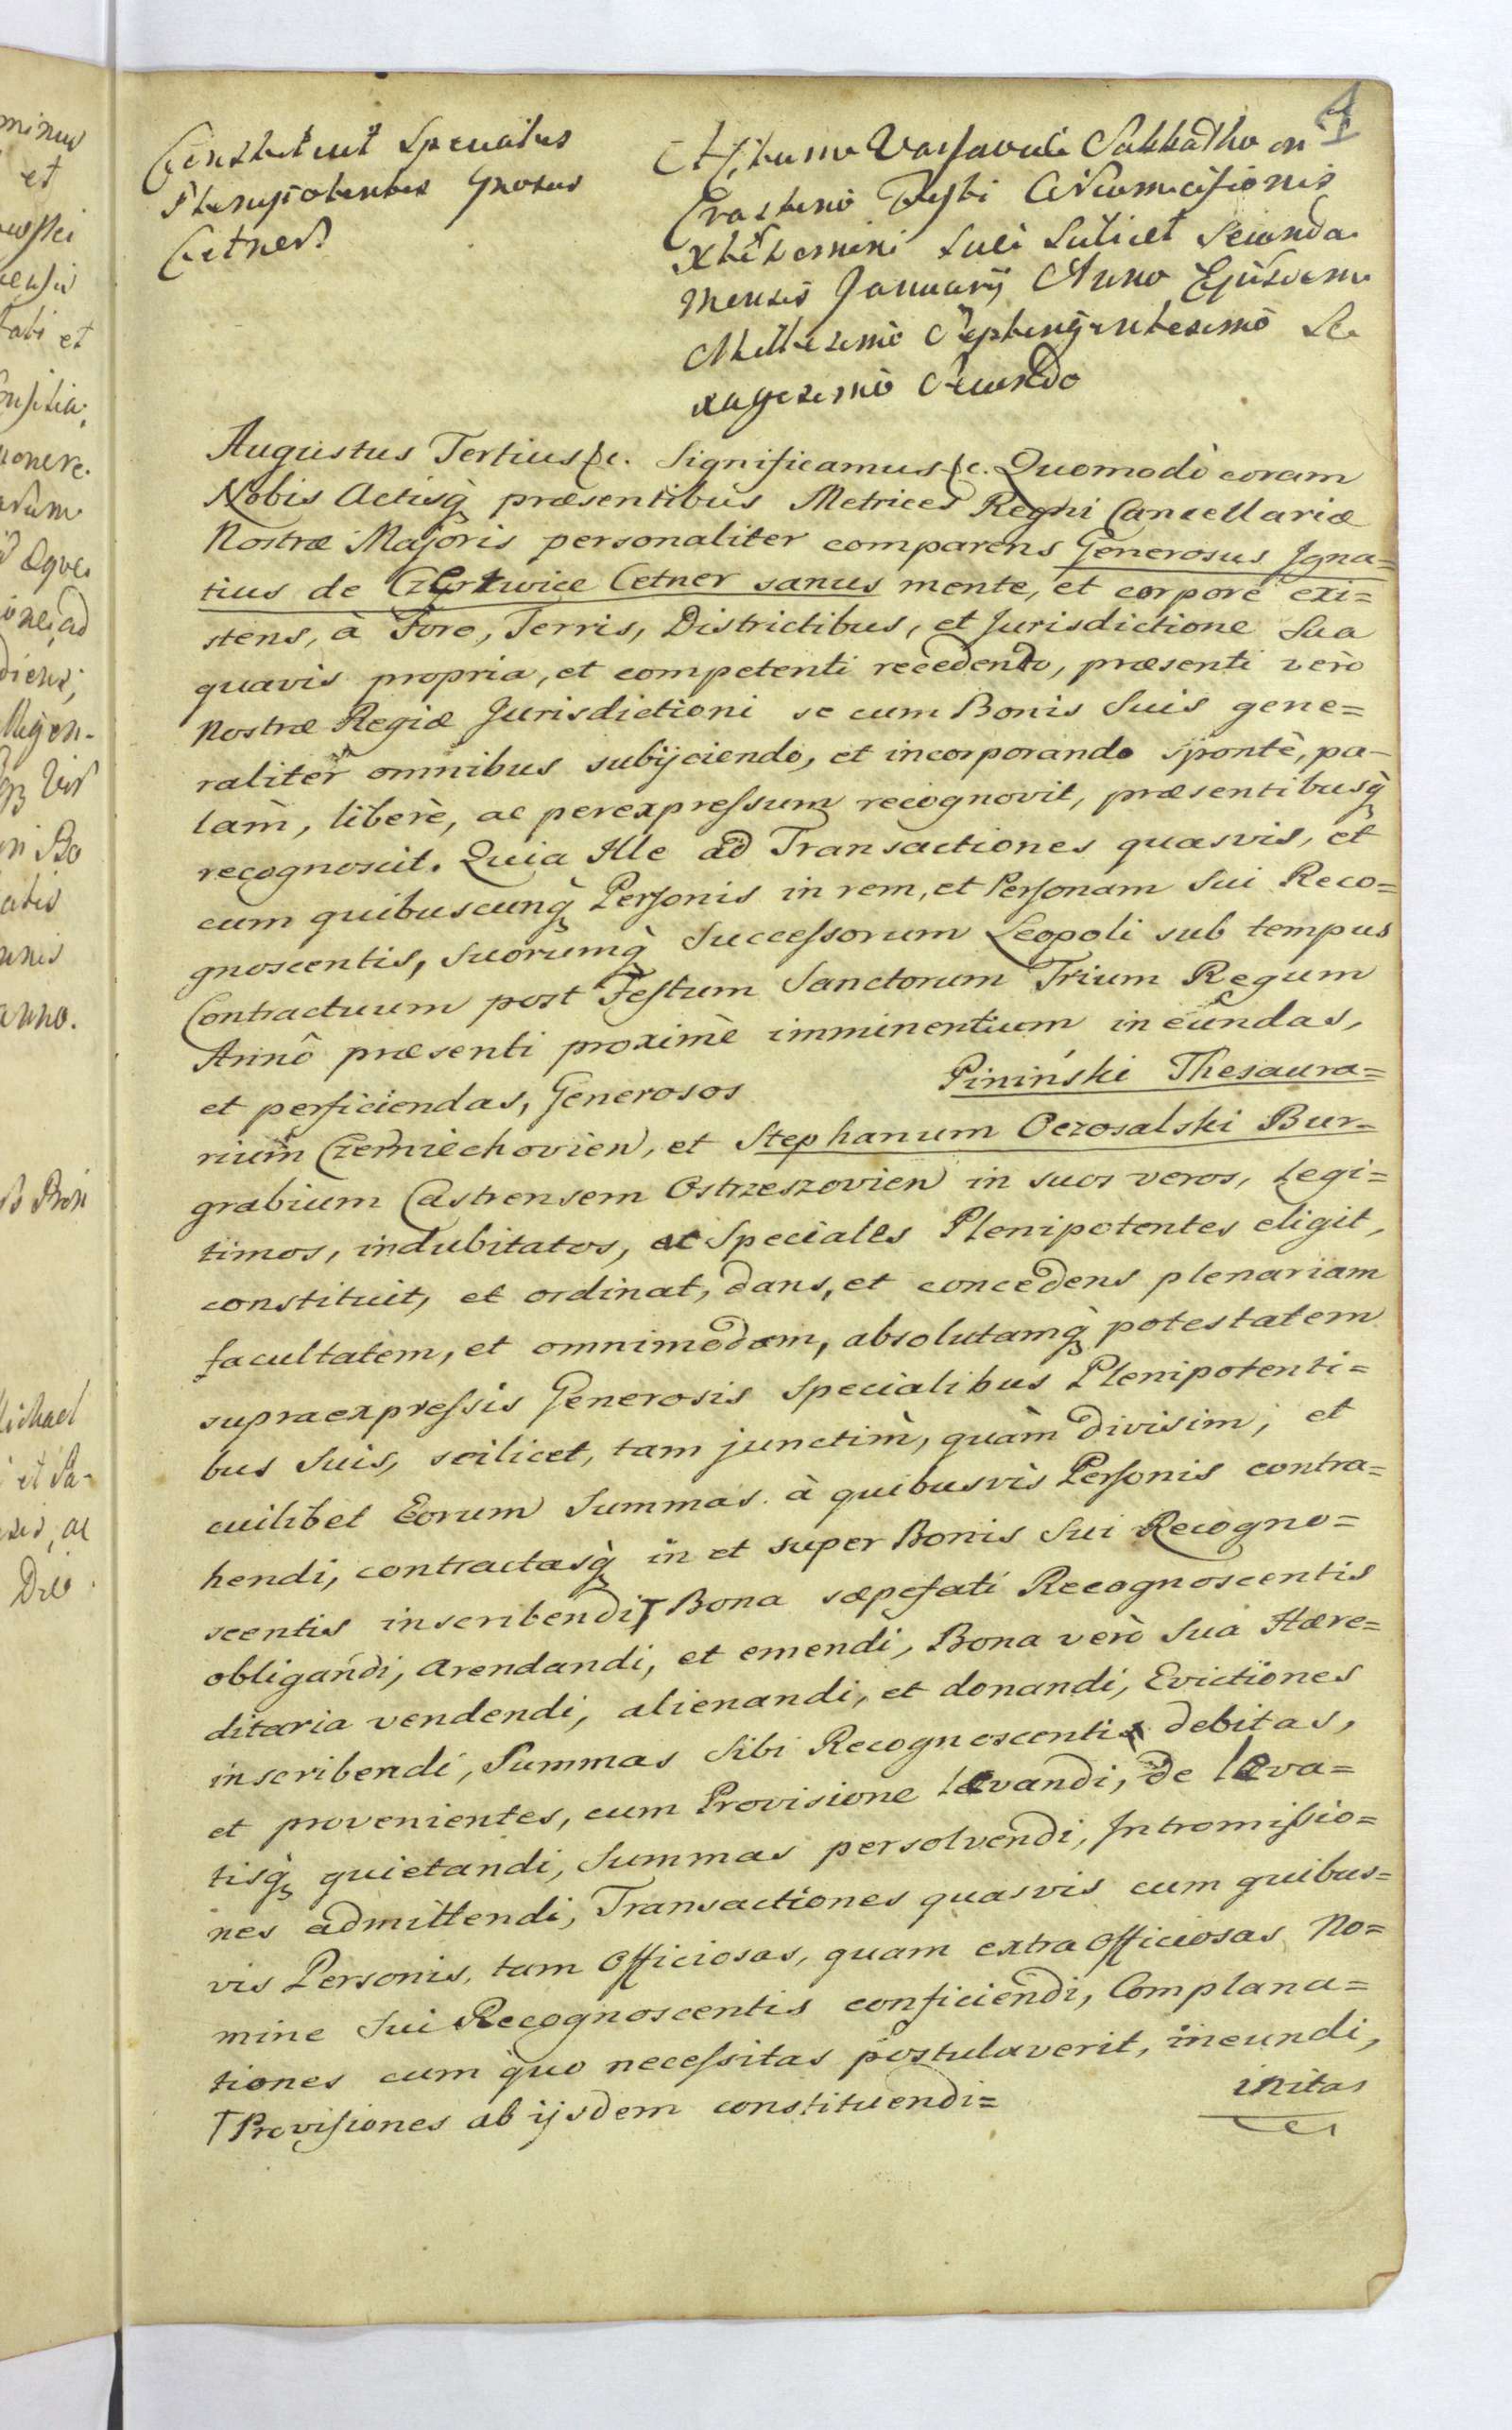 1
Constituit Speciales
Plenipotentes Gnosus
Cetner
Actum Varsaviæ Sabbatho in
Crastino Festi Circumcisionis
Xti Domini Sali Scilicet Secunda
Mensis Januarij Anno Ejusdem
Millesimo Septingentesimo Se
xagesimo Secundo
Augustus Tertius &c. Significamus &c. Quomodò coram
Nobis Actisq̀ præsentibus Metrices Regni Cancellariæ
Nostræ Majoris personaliter comparens Generosus Igna=
tius de Czertwice Cetner sanus mente, et corpore exi=
stens, à Foro, Terris, Districtibus, et Jurisdictione Sua
quavis propria, et competenti recedendo, præsenti verò
Nostræ Regiæ Jurisdictioni se cum Bonis Suis gene=
raliter omnibus subijciendo, et incorporando spontè, pa-
làm, liberè, ac per expressum recognovit, præsentibusq̀
recognoscit. Quia Ille ad Transactiones quasvis, et
cum quibuscunq̀ Personis in rem, et Personam Sui Reco=
gnoscentis, Suorumq̀ Successorum Leopoli sub tempus
Contractuum post Festum Sanctorum Trium Regum
Annô præsenti proximè imminentium ineundas,
et perficiendas, Generosos Pininski Thesaura=
rium Czerniechovien, et Stephanum Oczosalski Bur=
grabium Castrensem Ostrzeszovien in suos veros, legi=
timos, indubitatos, ac Speciales Plenipotentes eligit,
constituit, et ordinat, dans, et concedens plenariam
facultatem, et omnimodam, absolutamq̀ potestatem
supraexpressis Generosis Specialibus Plenipotenti=
bus Suis, scilicet, tam junctim̀, quàm divisim, et
cuilibet Eorum Summas à quibusvis Personis contra=
hendi, contractasq̀ in et super Bonis Sui Recogno=
scentis inscribendi, Ꞇ Bona sæpefati Recognoscentis
obligandi, arendandi, et emendi, Bona verò Sua Hære=
ditaria vendendi, alienandi, et donandi, Evictiones
inscribendi, Summas Sibi Recognoscenti debitas,
et provenientes, cum Provisione levandi, de leva=
tisq̀ quietandi, Summas persolvendi, Intromissio=
nes admittendi, Transactiones quasvis cum quibus=
vis Personis, tam Officiosas, quam extraOfficiosas No=
mine Sui Recognoscentis conficiendi, Complana=
tiones cum quo necessitas postulaverit, ineundi,
Ꞇ Provisiones ab ijsdem constituendi=
initas